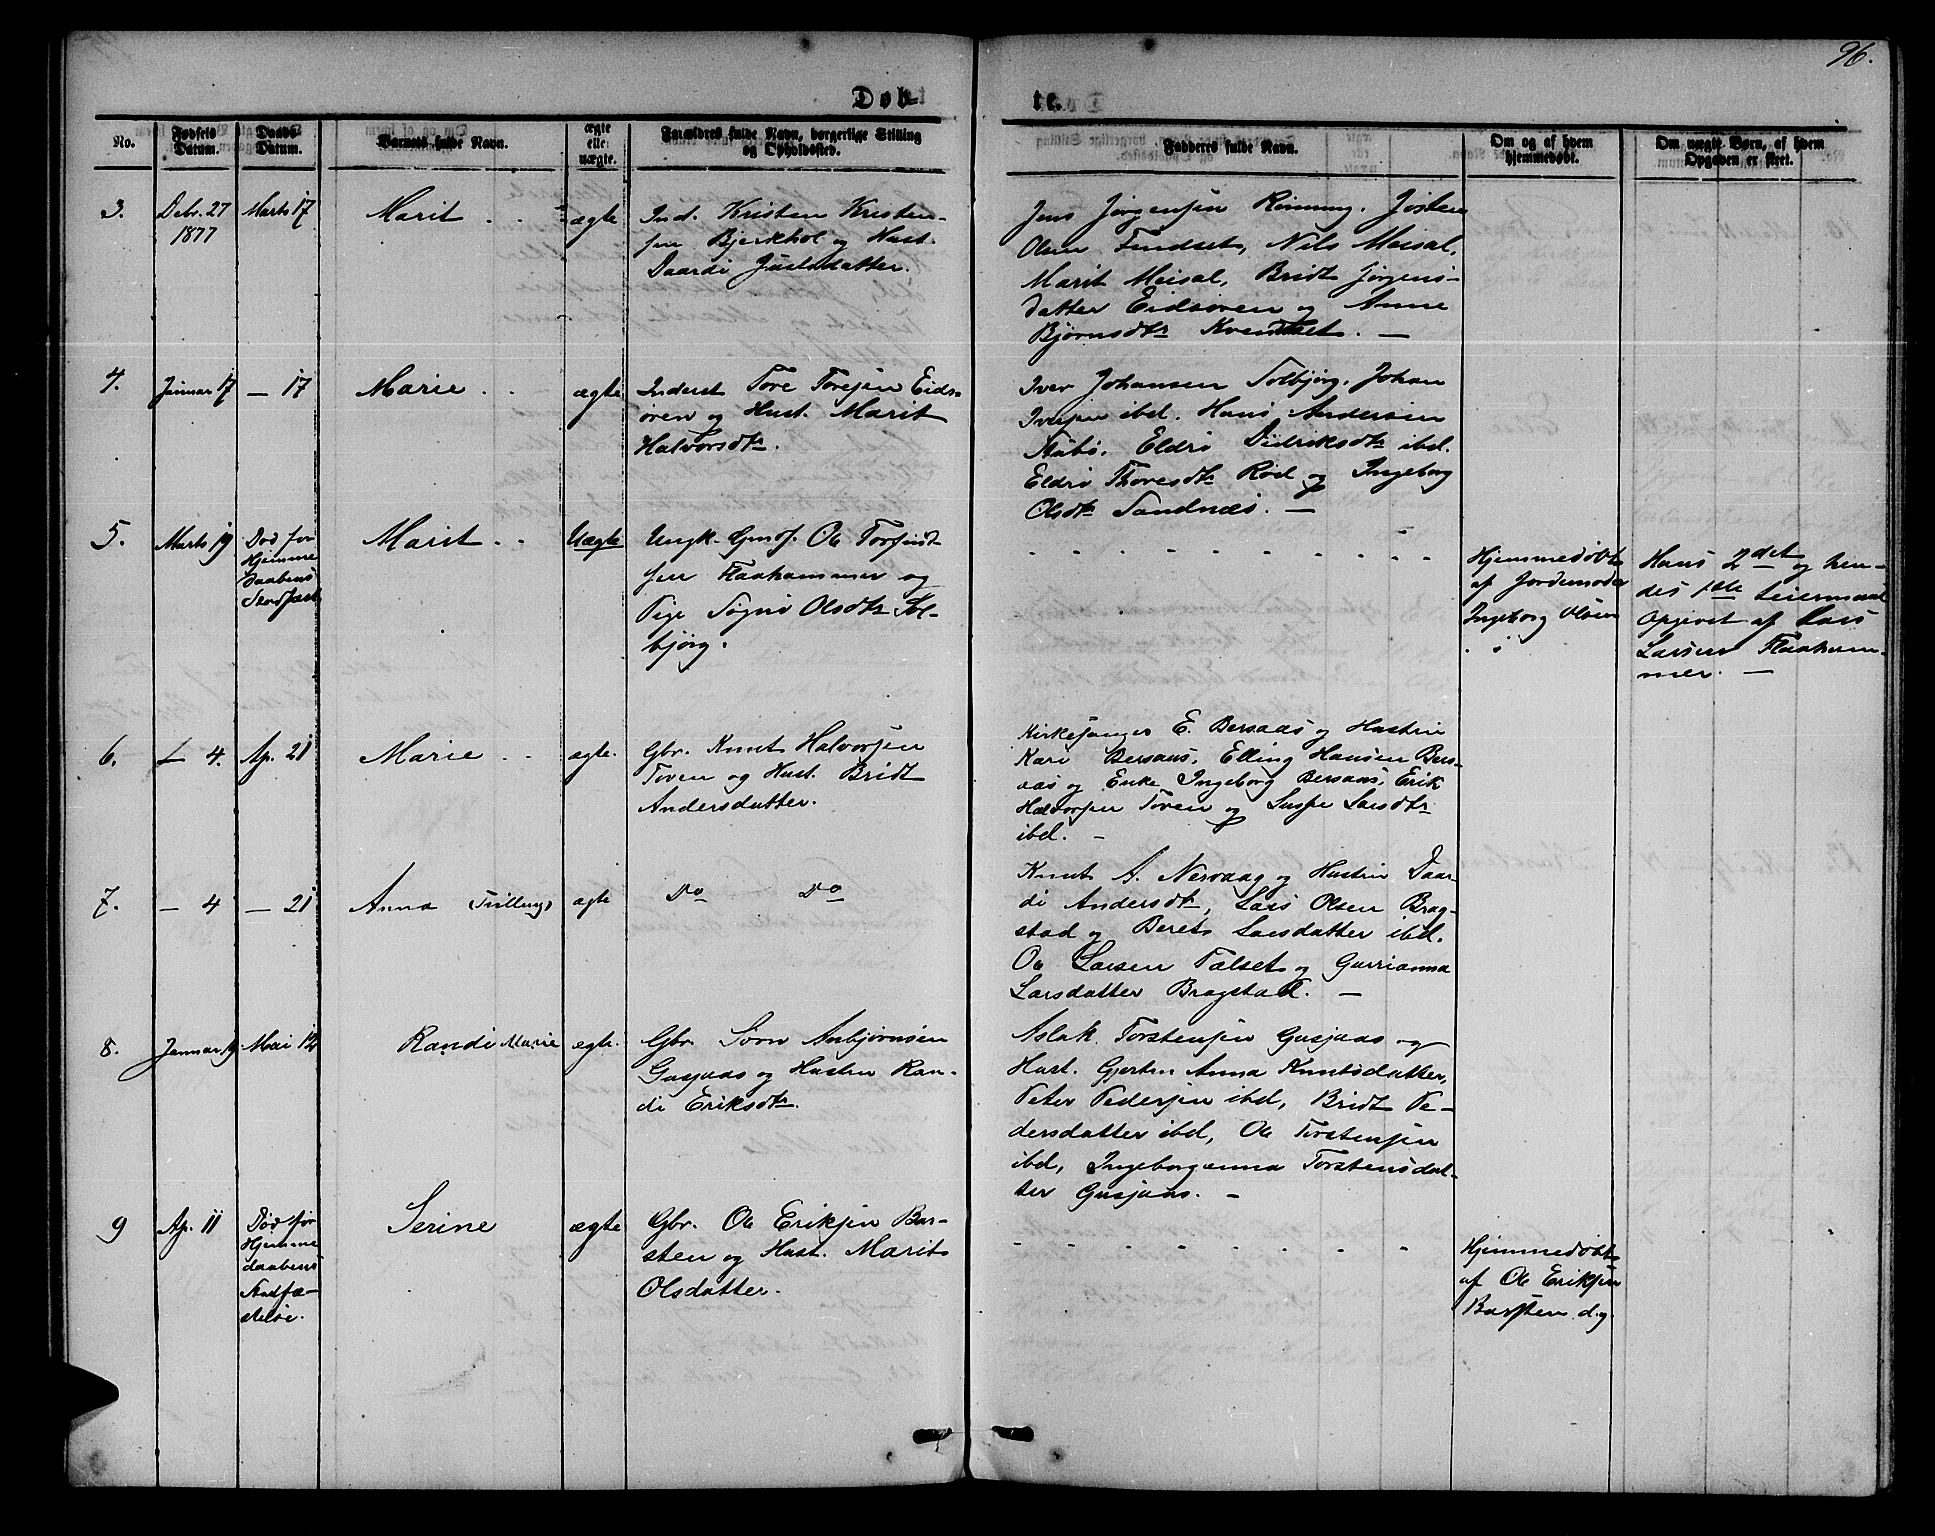 96.
Døb-
te.
No.
Fødsels Datum.
Daabs Datum.
Barnets fulde Navn.
ægte eller uægte.
Forældres fulde Navn, borgerlige Stilling og Opholdssted.
Fadderes fulde Navn.
Om og af hvem hjemmedøbt.
Om uægte Børn, af hvem Opgaven er sket.
3.
Debr. 27
1877
Marts 17
Marit
ægte
Ind. Kristen Kristen-
sen Bjerkhol og Hust.
Daardi Justsdatter.
Jens Jørgensen Rønning, Josten
Olsen Fendset, Nils Meisal,
Marit Meisal, Bridt Jørgens-
datter Eidsøren og Anne
Bjørnsdtr Kvendset. —
4.
Januar 17
— 17
Marie
ægte
Inderst Tore Toresen Eids-
øren og Hust. Marit
Halvorsdtr.
Iver Johansen Solbjørg, Johan
Iversen ibd. Hans Andersen
Stubø, Eldri Didriksdtr ibd.
Eldri Thoresdtr Rød og Ingeborg
Olsdtr Sandnæs. —
5.
Marts 19
Død før
Hjemme
daabens
Stadfæst
Marit
Uægte
Ungk. Gmdf. Ole Torfind
sen Flaahammer og
Pige Signi Olsdtr Sol-
bjørg.
Hjemmedøbt
af Jordemoder
Ingeborg Olsen
Hans 2det og hen-
des 1ste Leiermaal
Opgivet af Lars
Larsen Flaaham-
mer. —
6.
— 4.
Ap. 21
Marie
ægte.
Gbr. Knut Halvorsen
Toven og Hust. Bridt
Andersdatter.
Kirkesanger E. Bersaas og Hustru
Kari Bersaas, Elling Hansen Bers-
aas og Enke Ingeborg Bersaas, Erik
Halvorsen Toven og Larsdtr
ibd. —
7.
— 4
— 21
Anna (Tvilling)
ægte
Do Do
Knut A. Nersaag og Hustru Daar-
di Andersdtr, Lars Olsen Brag-
stad og Beret Larsdatter ibd.
Ole Larsen Talset og Gurrianna
Larsdatter Bragstad. —
8.
Januar 19
Mai 12
Randi Marie
ægte.
Gbr. Sørn Anbjørnsen
Gusjaas og Hustru Ran-
di Eriksdtr.
Aslak Torstensen Gusjaas og
Hust. Gjertru Anna Knutsdatter,
Peter Pedersen ibd, Bridt Pe-
dersdatter ibd, Ole Torstensen
ibd, Ingeborganna Torstensdat-
ter Gusjaas. —
9
Ap. 11
Død før
Hjemme
daabens
Stadfæ-
stelse.
Serine
ægte
Gbr. Ole Eriksen Bar-
sten og Hust. Marit
Olsdatter.
Hjemmedøbt
af Ole Eriksen
Barsten d.y.